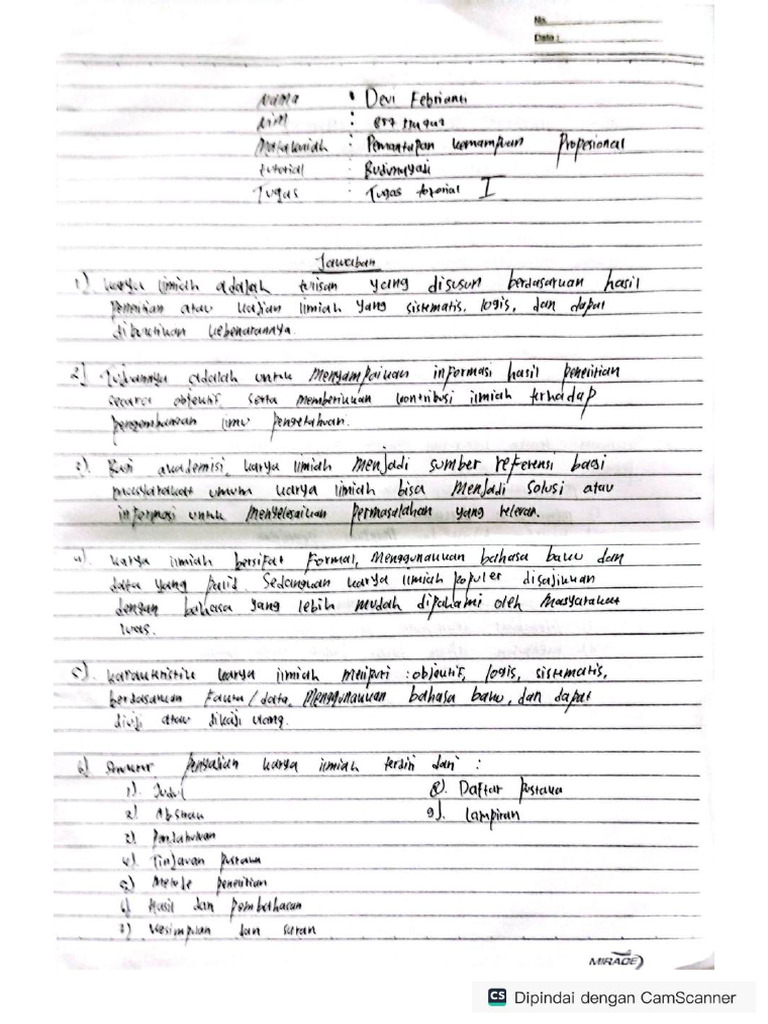 No.
Date :
Nama : Devi Febrianti
NIM :
Matakuliah : Pemantapan kemampuan Propesional
tutorial : Budimulyasi
Tugas : Tugas totorial I
Jawaban
1) karya ilmiah adalah tulisan yang disusun berdasarkan hasil
Penelitian atau kajian ilmiah yang sistematis, logis, dan dapat
dibuktikan kebenarannya.
2) Tujuannya adalah untuk Menyampaikan informasi hasil penelitian
secara objektif, serta memberikan kontribusi ilmiah terhadap
pengembangan ilmu pengetahuan.
3). Bagi akademisi, karya ilmiah Menjadi sumber referensi bagi
masyarakat umum karya ilmiah bisa Menjadi solusi atau
informasi untuk Menyelesaikan permasalahan yang relevan.
4) karya ilmiah bersifat Formal, Menggunakan bahasa baku dan
data yang palid. Sedangkan karya ilmiah populer disajikan
dengan bahasa yang lebih mudah dipahami oleh Masyarakat
luas.
5). karakteristik karya ilmiah meliputi : objektif, logis, sistematis,
berdasarkan Fakta / data, Menggunakan bahasa baku, dan dapat
diuji atau dikaji ulang.
6) Struktur Penyajian karya ilmiah terdiri dari :
1). Judul
2) Abstrak
3) Pendahuluan
4) Tinjauan Pustaka
5) Metode penelitian
6) Hasil dan Pembahasan
7) Kesimpulan dan saran
8). Daftar Pustaka
9). Lampiran
MIRAGE
CS Dipindai dengan CamScanner